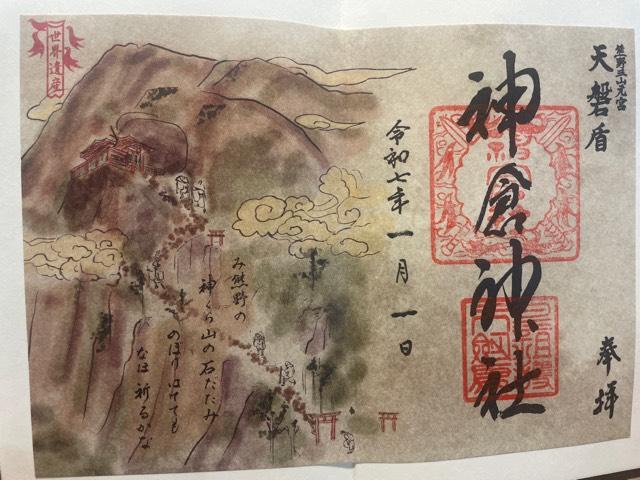 熊野三山元宮
天磐盾
奉拝
神倉神社
令和七年一月一日
み熊野の
神くら山の石だたみ
のぼりはてても
なほ祈るかな
世界遺産